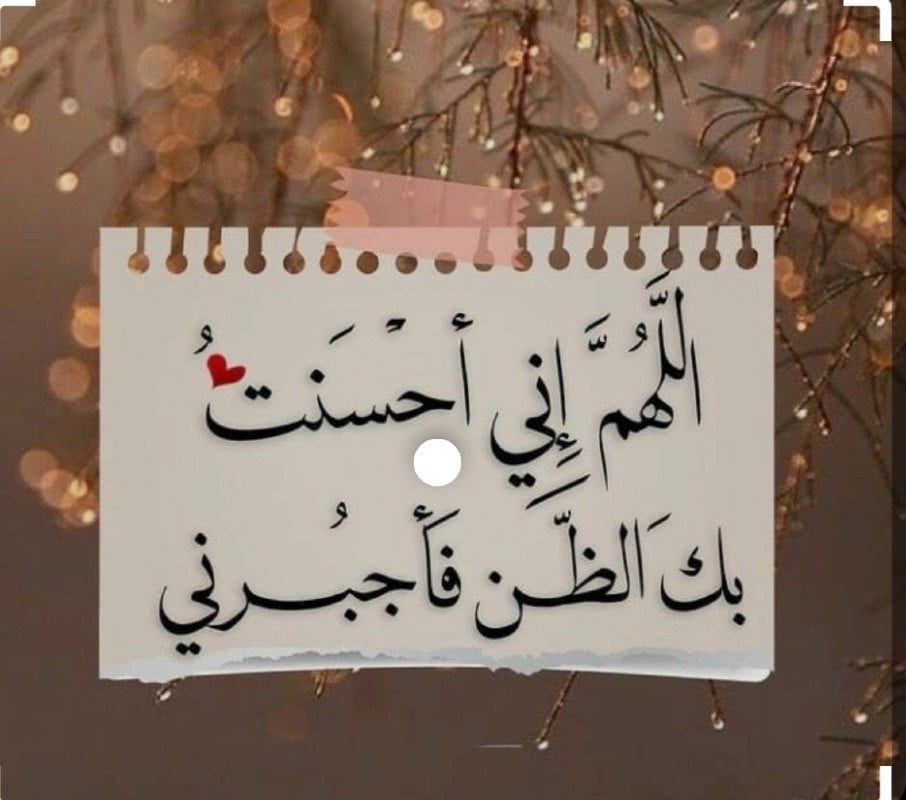 اللَّهُمَّ إِنِّي أَحْسَنتُ
بكَ الظَّن فَأَجبُرني